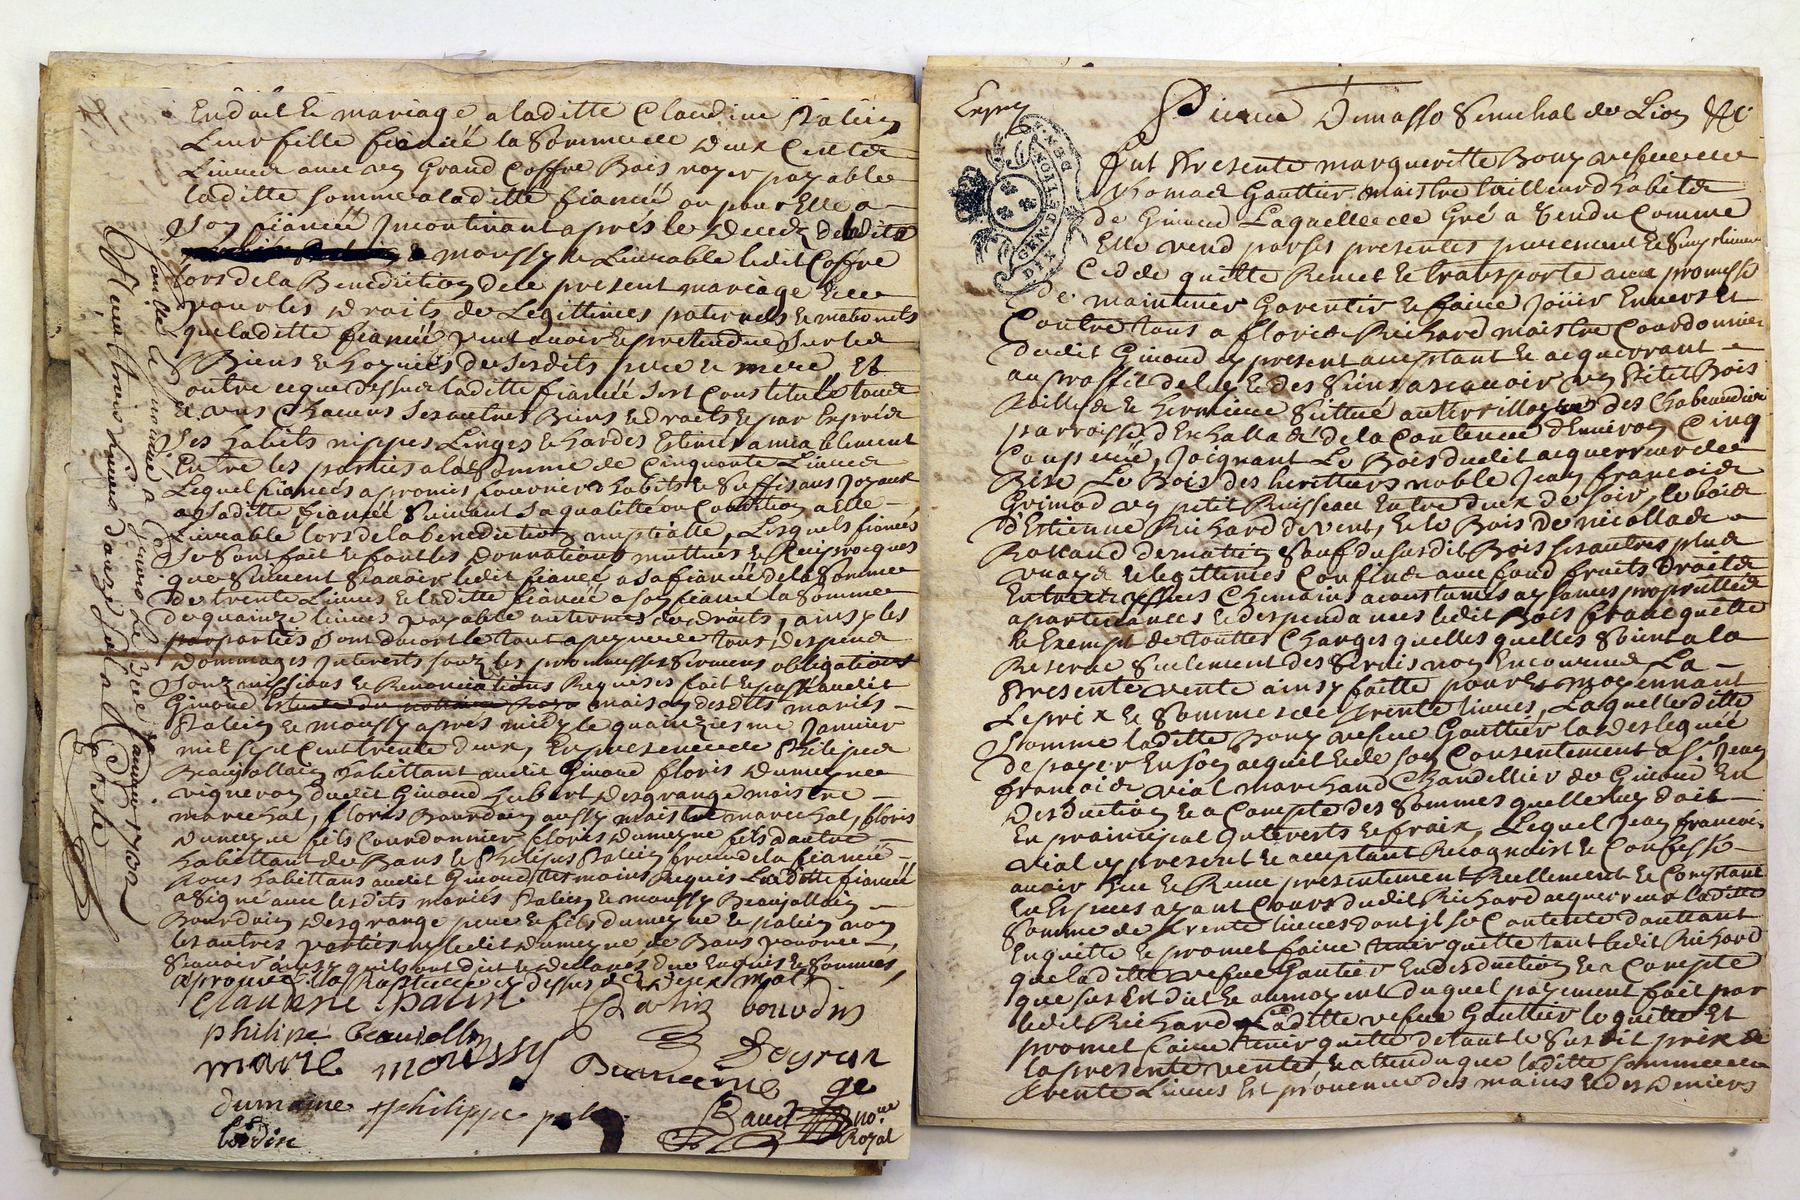 En dot de mariage a laditte Claudine Palin
Leur fille fiancée la somme de deux Cent
Livres avec un Grand Coffre Bois noyer payable
laditte somme a laditte fiancée ou pour Elle a
son fiancé Incontinant après le deceds
moussy et Livrable ledit Coffre
lors de la Benediction de ce present mariage
pour les droits de Legittimes paternels et maternels
que laditte fiancée peut avoir et pretendre sur les
Biens et hoyries de sesdits pere et mere, Et
outre ce que dessus laditte fiancée s'est Constitué tous
et uns Chacuns ses autres Biens et droits et par Exprés
Ses habits nippes Linges et hardes Estimés amiablement
Entre les parties a la somme de Cinquante Livres
Lequel fiancé a promis fournir d'habits et suffisans Joyaux
a saditte fiancée suivant sa qualitté ou Condition a Elle
Livrable lors de la benediction nuptialle, Lesquels fiancés
Se sont fait et font les donnations mutuës et Reciproques
que suivent sçavoir ledit fiancé a sa fiancée de la somme
de trente Livres et laditte fiancée a son fiancé la somme
de quainze livres payable au termes de droits, ainsy les
parties sont d'acort le tout a peyne de tous despens
dommages Interests sous les promesses sermens obligations
Soumissions et Renonciations Requises fait et passé audit
Givord maison desdits mariés
Palin et moussy après midy le quainziesme Janvier
mil sept Cent trente deux, En presence de Philippe
Beaujollain habittant audit Givord floris dumeyne
vigneron dudit Givord hubert desgrange maistre
marechal, floris Bourdin aussy maistre marechal, floris
dumeyne fils Cordonnier floris dumeyne fils d'autre
habittant de Bans et Philipus Palin frere de la fiancée
tous habittans audit Givord tesmoins Requis Laditte fiancée
a Signé avec lesdits mariés Palin et moussy Beaujollain
Bourdin desgrange pere et fils dumeyne et palin non
les autres parties ny ledit dumeyne de Bans pour ne
Scavoir ainsy qu'ils ont dit et declaré de ce Enquis et Sommés,
claudine palin Palin bourdin
philippe beaujollin
marie moussy Desgran
ge
dumaine philippe palin
bordin
no.re
Royal
Contrerollé a Givors le Janvier 1732
Reçu trois livres douze sols
Pierre Dumasso Senechal de Lion &c
GEN. DE LYON
DIX DEN.
fut Presente margueritte Bony vefue de
thomas Gauttier maistre tailleur d'habits
de Givord Laquelle de Gré a Vendu Comme
Elle vend par ses presentes purement et simplement
Cede quitte Remet et transporte avec promesse
de maintenir Garentir et faire Joüir Envers et
Contre tous a floris Richard maistre Cordonnier
dudit Givord cy present aceptant et acquerrant
au proffit de luy et des siens asçavoir un Petit Bois
Taillis et hermiere Situé au territoire des Chabeaudiere
parroisse d'Echallas de la Contenue d'Environ Cinq
Couperée, Joignant Le Bois dudit acquerreur de
Bize Le Bois des heritiers noble Jean francois
Grimod un petit Ruisseau Entre deux de soir, le bois
d'Estienne Richard de vent, et le Bois de nicollas
Rolland de matin Sauf du susdit Bois ses autres plus
vrays et legittimes Confins avec fond fruits Droits
Entrées yssues Chemains acoustumés aysances proprietés
apartenances et despendances ledit Bois franc quitte
et Exempt de touttes Charges quelles quelles soient a la
Reserve Seulement des Servis non Encourus La
Presente vente ainsy faitte pour Et moyennant
Le prix et Somme de trente livres, Laquelle ditte
Somme laditte Bony vefue Gauttier la desleguée
de payer En son acquit et de son Consentement a Sr. Jean
francois vial marchand Chandellier de Givord En
Desduction et a Compte des Sommes quelle luy doit
En prainsipal Interests et fraix, Lequel Jean francois
vial cy present et aceptant Recognoist et Confesse
avoir Eu et Receu presentement Reellement et Comptant
En Especes ayant Cours dudit Richard acquerreur laditte
Somme de trente livres dont jl se Contente d'auttant
Enquitte et promet faire tenir quitte tant ledit Richard
que laditte vefue Gauttier En desduction et a Compte
que sus Est dit Et au moyent duquel payement fait par
ledit Richard Laditte vefue Gauttier lo quitte Et
promet faire tenir quitte de tout le Susdit prix de
la presente vente, Et attendu que laditte Somme de
trente Livres Est provenue des mains et des deniers